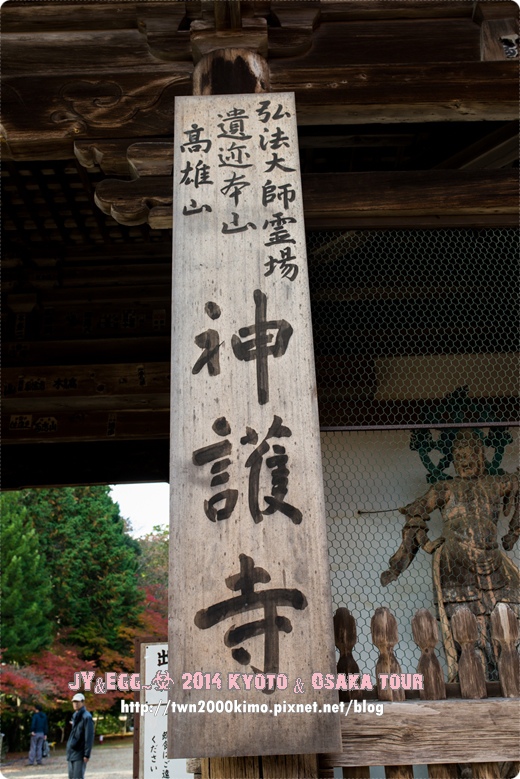 弘法大師霊場
遺迹本山
高雄山
神護寺
出
ください
JY&EGG~ 2014 KYOTO & OSAKA TOUR
http://twn2000kimo.pixnet.net/blog